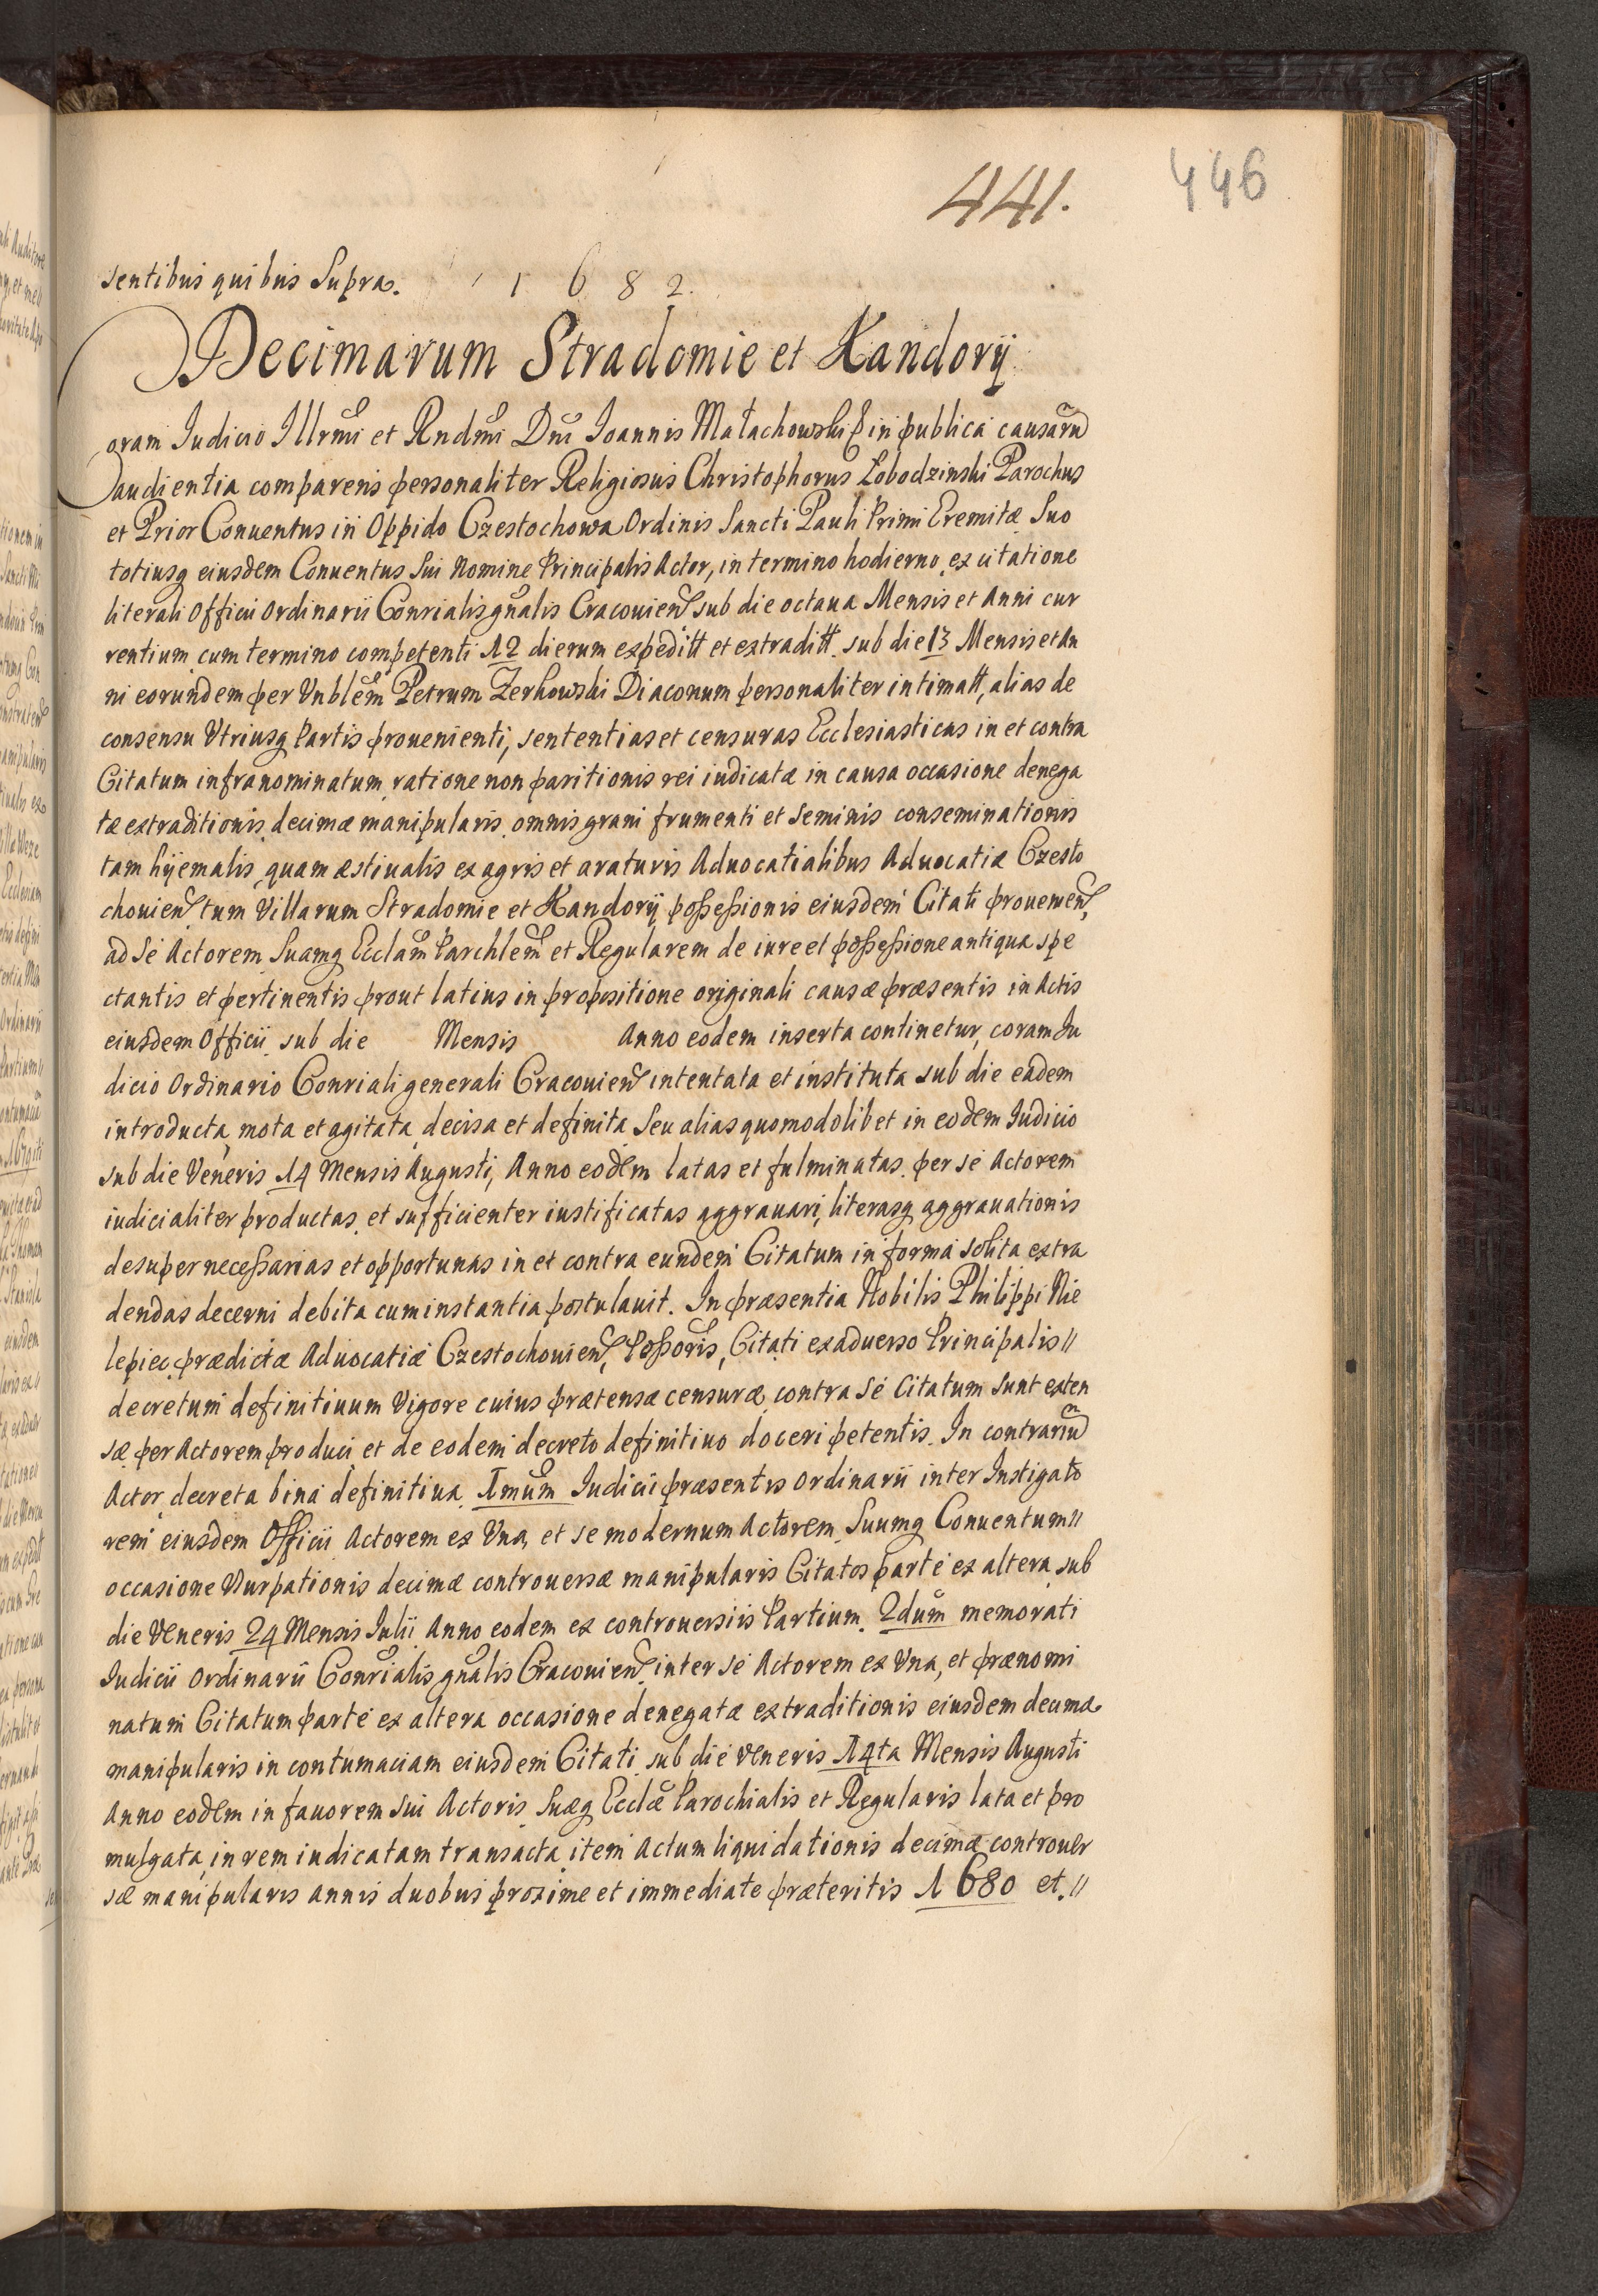 441.
446
sentibus quibus Supra. 1682.
Decimarum Stradomie et Kandorÿ
Coram Iudicio Illrmi et Rndmi Dni Ioannis Małachowski in publica causarũ
audientia comparens personaliter Religiosus Christophorus Łobodzinski Parochus
et Prior Conuentus in Oppido Czestochowa Ordinis Sancti Pauli Primi Eremitæ Suo
totiusq eiusdem Conuentus Sui Nomine Principalis Actor, in termino hodierno ex citatione
literali Officii Ordinarii Conrialis gnalis Cracouien sub die octaua Mensis et Anni cur
rentium cum termino competenti 12 dierum expeditt et extraditt. sub die 13 Mensis et An
ni eorundem per Vnblem Petrum Zerkowski Diaconum personaliter intimatt, alias de
consensu Vtriusq Partis prouenienti, sententias et censuras Ecclesiasticas in et contra
Citatum infranominatum ratione non paritionis rei iudicatæ in causa occasione denega
tæ extraditionis decimæ manipularis omnis grani frumenti et Seminis conseminationis
tam hÿemalis quam æstiualis ex agris et araturis Aduocatialibus Aduocatiæ Czesto
chouien tum Villarum Stradomie et Kandorÿ possessionis eiusdem Citati prouenien,
ad Se Actorem Suamq Ecclam Parchlem et Regularem de iure et possessione antiqua spe
ctantis et pertinentis prout latius in propositione originali causæ præsentis in Actis
eiusdem Officii sub die Mensis Anno eodem inserta continetur, coram Iu
dicio Ordinario Conriali generali Cracouien intentata et instituta sub die eadem
introducta, mota et agitata, decisa et definita Seu alias quomodolibet in eodem Iudicio
sub die Veneris 14 Mensis Augusti, Anno eodem latas et fulminatas per se Actorem
iudicialiter productas et sufficienter iustificatas aggrauari, literasq aggrauationis
desuper necessarias et opportunas in et contra eundem Citatum in forma solita extra
dendas decerni debita cum instantia postulauit. In præsentia Nobilis Philippi Nie
lepiec prædictæ Aduocatiæ Czestochouien, Possoris, Citati ex aduerso Principalis //
decretum definitiuum Vigore cuius prætensæ censuræ contra se Citatum sunt exten
sæ per Actorem produci et de eodem decreto definitiuo doceri petentis. In contrariũ
Actor decreta bina definitiua 1mum Iudicii præsentis Ordinarii inter Instigato
rem eiusdem Officii Actorem ex Vna, et se modernum Actorem Suumq Conuentum //
occasione Vurpationis decimæ controuersæ manipularis Citatos parte ex altera sub
die Veneris 24 Mensis Iulii Anno eodem ex controuersiis Partium. 2dum memorati
Iudicii Ordinarii Conrialis gnalis Cracouien inter se Actorem ex Vna, et prænomi
natum Citatum parte ex altera occasione denegatæ extraditionis eiusdem decimæ
manipularis in contumaciam eiusdem Citati sub die Veneris 14ta Mensis Augusti
Anno eodem in fauorem sui Actoris Suæq Ecclæ Parochialis et Regularis lata et pro
mulgata in rem iudicatam transacta, item Actum liquidationis decimæ controuer
sæ manipularis annis duobus proxime et immediate præteritis 1680 et. //